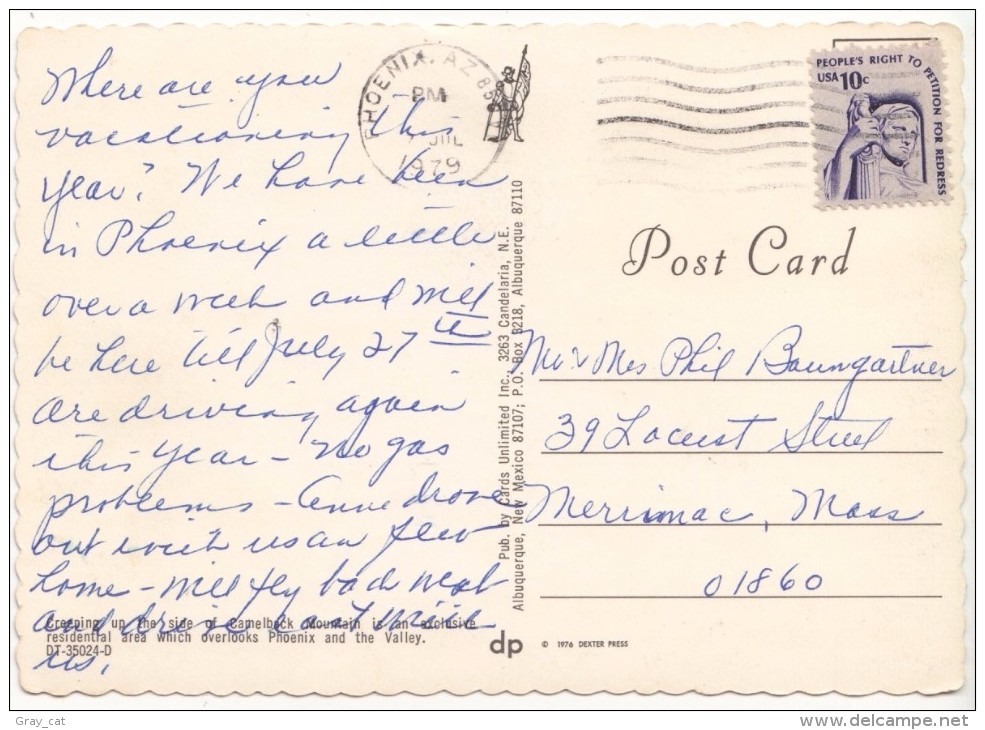 Where are you
vacationing this
year? We have been
in Phoenix a little
over a week and will
be here till July 27th
are driving again
this year - no gas
problems - Anne drove
out with us an flew
home - will fly back west
and drive east with
us.
Creeping up the side of Camelback Mountain is an exclusive
residential area which overlooks Phoenix and the Valley.
DT-35024-D
PHOENIX, AZ
PM
JUL
1979
Pub. by Cards Unlimited Inc., 3263 Candelaria, N.E.
Albuquerque, New Mexico 87107; P.O. Box 8218, Albuquerque 87110
PEOPLE'S RIGHT TO PETITION FOR REDRESS
USA 10c
Post Card
Mr & Mrs Phil Baumgartner
39 Locust Street
Merrimac, Mass
01860
dp © 1976 DEXTER PRESS
Gray_cat
http://www.delcampe.net